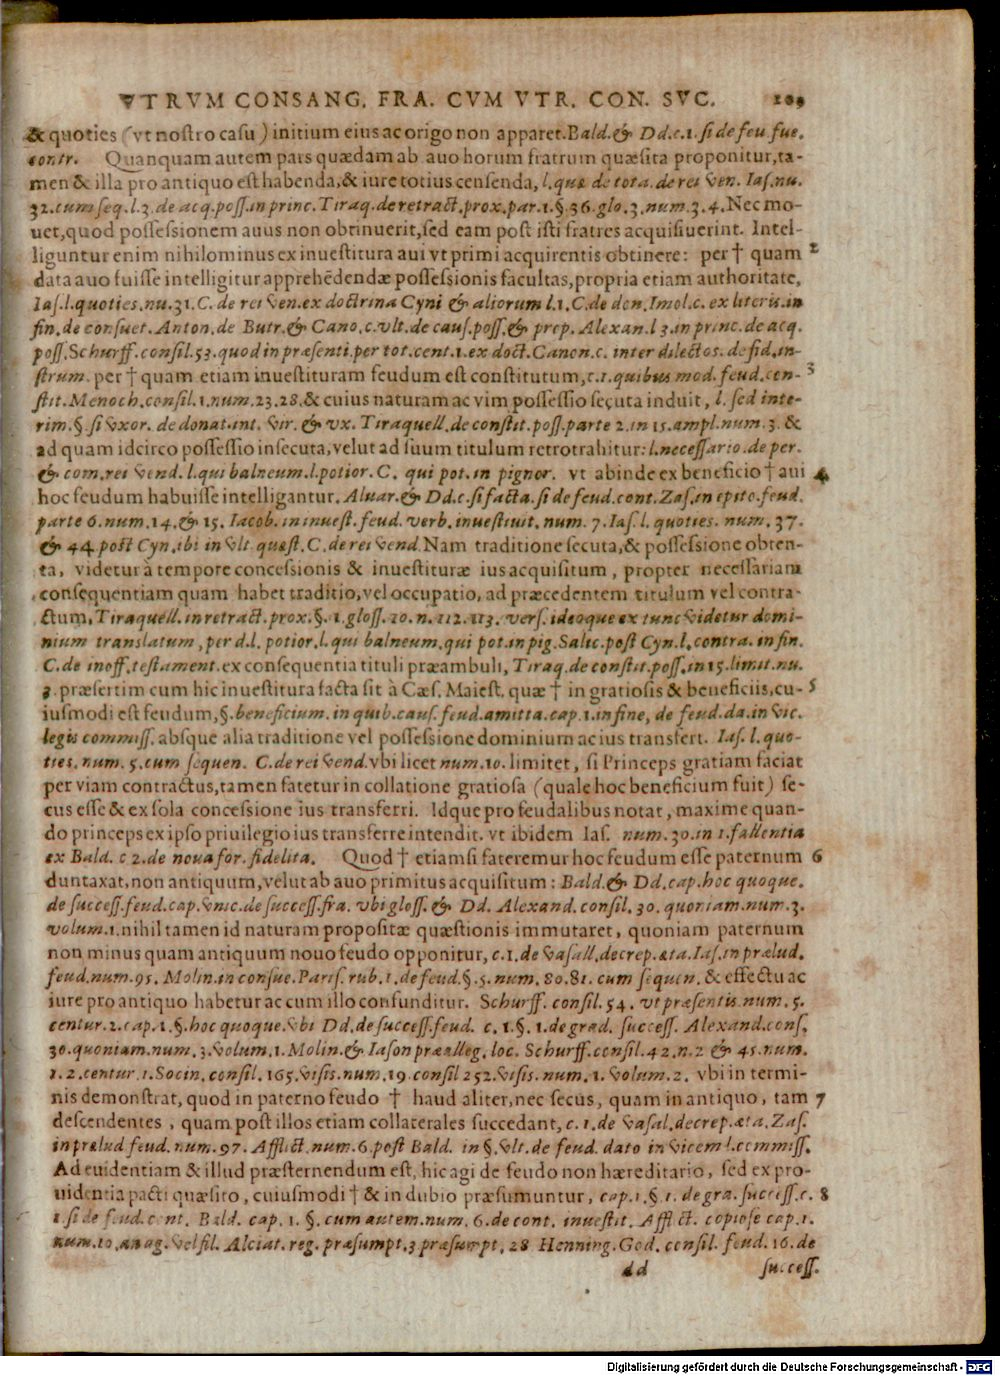 VTRVM CONSANG. FRA. CVM VTR. CON. SVC. 209
& quoties (vt nostro casu) initium eius ac origo non apparet. Bald. & Dd. c. 1. si de feu. fue.
contr. Quanquam autem pars quædam ab auo horum fratrum quæsita proponitur, ta-
men & illa pro antiquo est habenda, & iure totius censenda, l. quæ de tota. de rei ven. Ias. nu.
32. cum seq. l. 3. de acq. poss. in princ. Tiraq. de retract. prox. par. 1. §. 36. glo. 3. num. 3. 4. Nec mo-
uet, quod possessionem auus non obtinuerit, sed eam post isti fratres acquisiuerint. Intel-
liguntur enim nihilominus ex inuestitura aui vt primi acquirentis obtinere: per † quam 2
data auo fuisse intelligitur apprehēdendæ possessionis facultas, propria etiam authoritate,
Ias. l. quoties. nu. 31. C. de rei ven. ex doctrina Cyni & aliorum l. 1. C. de don. Imol. c. ex literis. in
fin. de consuet. Anton. de Butr. & Cano. c. vlt. de caus. poss. & prop. Alexan. l 3. in princ. de acq.
poss. Schurff. consil. 53. quod in præsenti. per tot. cent. 1. ex doct. Canon. c. inter dilectos. de fid. in-
strum. per † quam etiam inuestituram feudum est constitutum, c. 1. quibus mod. feud. con- 3
stit. Menoch. consil. 1. num. 23. 28. & cuius naturam ac vim possessio secuta induit, l. sed inte-
rim. §. si vxor. de donat. int. vir. & vx. Tiraquell. de constit. poss. parte 2. in 15. ampl. num. 3. &
ad quam idcirco possessio insecuta, velut ad suum titulum retrotrahitur: l. necessario. de per.
& com. rei vend. l. qui balneum. l. potior. C. qui pot. in pignor. vt abinde ex beneficio † aui 4
hoc feudum habuisse intelligantur. Aluar. & Dd. c. si facta. si de feud. cont. Zas. in epito. feud.
parte 6. num. 14. & 15. Iacob. in inuest. feud. verb. inuestiuit. num. 7. Ias. l. quoties. num. 37.
& 44. post Cyn. ibi in vlt. quæst. C. de rei vend. Nam traditione secuta, & possessione obten-
ta, videtur à tempore concessionis & inuestituræ ius acquisitum, propter necessariam
consequentiam quam habet traditio, vel occupatio, ad præcedentem titulum vel contra-
ctum. Tiraquell. in retract. prox. §. 1. gloss. 10. n. 112. 113. vers. ideoque ex tunc videtur domi-
nium translatum, per d. l. potior. l. qui balneum. qui pot. in pig. Salic. post Cyn. l. contra. in fin.
C. de inoff. testament. ex consequentia tituli præambuli, Tiraq. de constit. poss. in 15. limit. nu.
3. præsertim cum hic inuestitura facta sit à Cæs. Maiest. quæ † in gratiosis & beneficiis, cu- 5
iusmodi est feudum, §. beneficium. in quib. caus. feud. amitta. cap. 1. in fine, de feud. da. in vic.
legis commiss. absque alia traditione vel possessione dominium ac ius transfert. Ias. l. quo-
ties. num. 5. cum sequen. C. de rei vend. vbi licet num. 10. limitet, si Princeps gratiam faciat
per viam contractus, tamen fatetur in collatione gratiosa (quale hoc beneficium fuit) se-
cus esse & ex sola concessione ius transferri. Idque pro feudalibus notat, maxime quan-
do princeps ex ipso priuilegio ius transferre intendit. vt ibidem Ias. num. 30. in 1. fallentia
ex Bald. c 2. de noua for. fidelita. Quod † etiamsi fateremur hoc feudum esse paternum 6
duntaxat, non antiquum, velut ab auo primitus acquisitum: Bald. & Dd. cap. hoc quoque.
de success. feud. cap. vnic. de success. fra. vbi gloss. & Dd. Alexand. consil. 30. quoniam. num. 3.
volum. 1. nihil tamen id naturam propositæ quæstionis immutaret, quoniam paternum
non minus quam antiquum nouo feudo opponitur, c. 1. de vasall. decrep. æta. Ias. in prælud.
feud. num. 95. Molin. in consue. Paris. rub. 1. de feud. §. 5. num. 80. 81. cum sequen. & effectu ac
iure pro antiquo habetur ac cum illo confunditur. Schurff. consil. 54. vt præsentis. num. 5.
centur. 2. cap. 1. §. hoc quoque. vbi Dd. de success. feud. c. 1. §. 1. de grad. success. Alexand. cons.
30. quoniam. num. 3. volum. 1. Molin. & Iason præalleg. loc. Schurff. consil. 42. n. 2 & 45. num.
1. 2. centur. 1. Socin. consil. 165. visis. num. 19. consil 252. visis. num. 1. volum. 2. vbi in termi-
nis demonstrat, quod in paterno feudo † haud aliter, nec secus, quam in antiquo, tam 7
descendentes, quam post illos etiam collaterales succedant, c. 1. de vasal. decrep. æta. Zas.
in prælud feud. num. 97. Afflict. num. 6. post Bald. in §. vlt. de feud. dato in vicem l. commiss.
Ad euidentiam & illud præsternendum est, hic agi de feudo non hæreditario, sed ex pro-
uidentia pacti quæsito, cuiusmodi † & in dubio præsumuntur, cap. 1. §. 1. de gra. success. c. 8
1 si de feud. cont. Bald. cap. 1. §. cum autem. num. 6. de cont. inuestit. Afflict. copiose cap. 1.
num. 10. an ag. vel fil. Alciat. reg. præsumpt. 3 præsumpt. 28 Henning. God. consil. feud. 16. de
dd success.
Digitalisierung gefördert durch die Deutsche Forschungsgemeinschaft - DFG